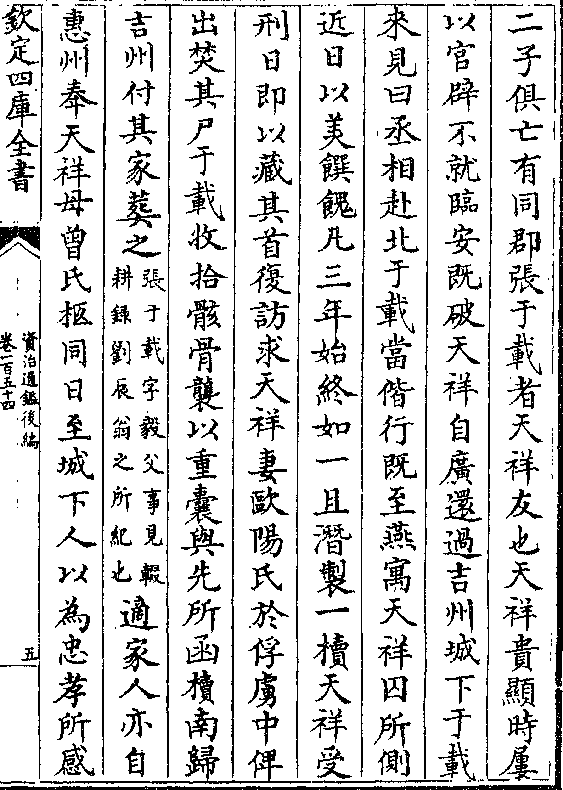 二子俱亡有同郡張于載者天祥友也天祥貴顯時屢
以官辟不就臨安既破天祥自廣還過吉州城下于載
來見曰丞相赴北于載當偕行既至燕寓天祥囚所側
近日以美饌餽凡三年始終如一且潛製一櫝天祥受
刑日即以藏其首復訪求天祥妻歐陽氏於俘虜中俾
出焚其尸于載收拾骸骨襲以重囊與先所函櫝南歸
吉州付其家葬之張于載字毅父事見輟
耕録劉辰翁之所紀也適家人亦自
惠州奉天祥母曾氏柩同日至城下人以為忠孝所感
欽定四庫全書
資治通鑑後編
卷一百五十四
五